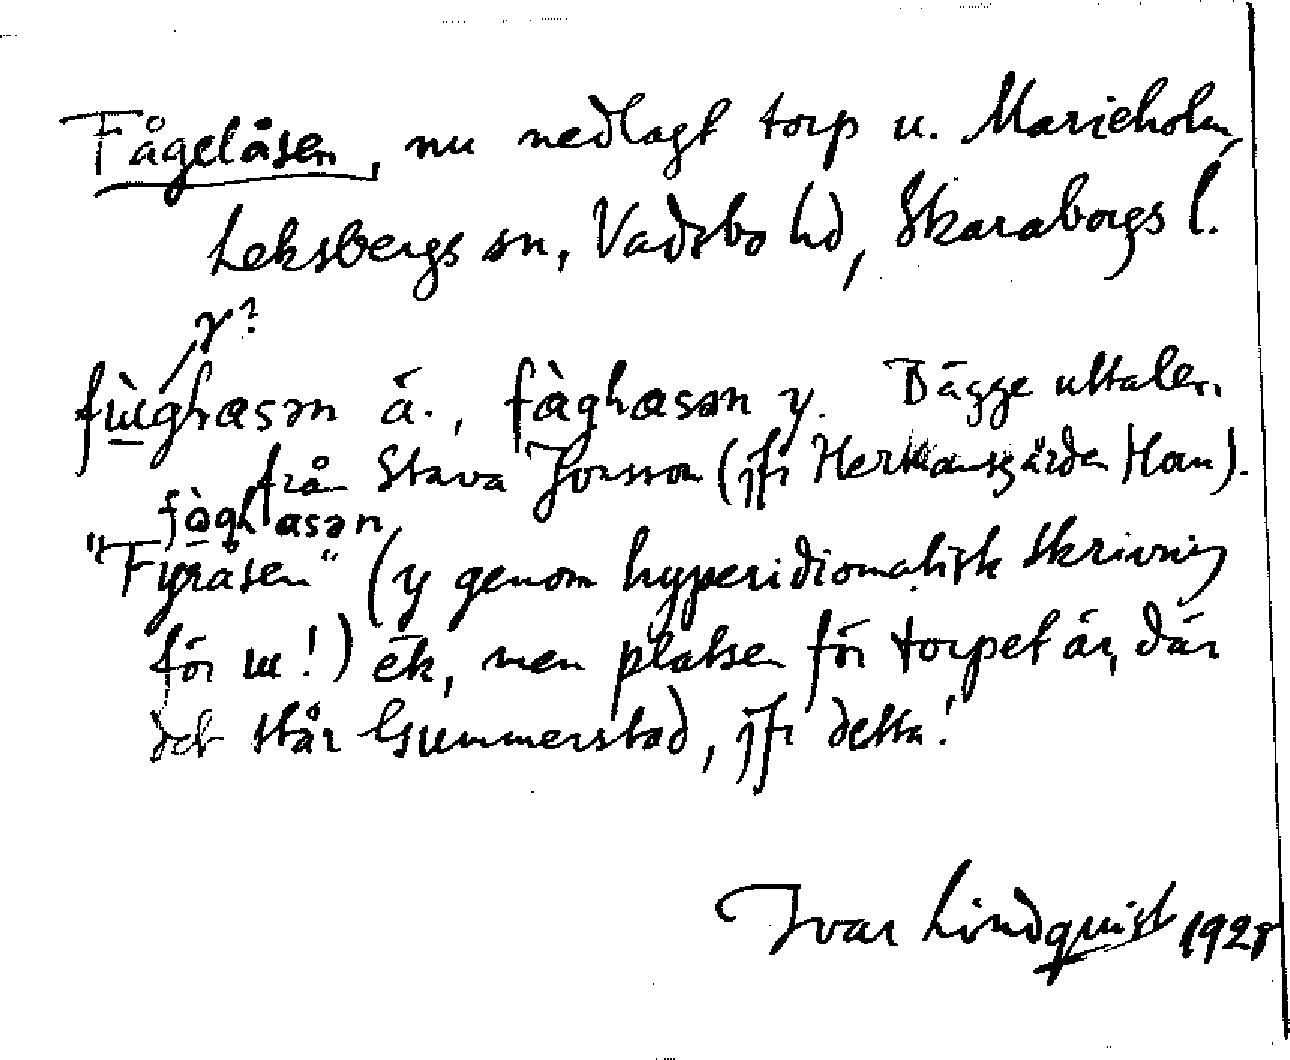 Fågelåsen, nu nedlagt torp u. Marieholm,
Leksbergs sn, Vadsbo hd, Skaraborgs l.
γ?
fɯ̀ghasən ä., fàghasən y. Bägge uttalen
från Stava Jonsson (jfr Hermansgärden Han).
fògh asən
"Fyråsen" (y genom hyperidiomatisk skrivning
för ɯ!) ek, men platsen för torpet är, där
det står Gummerstad, jfr detta!
Ivar Lindquist 1928